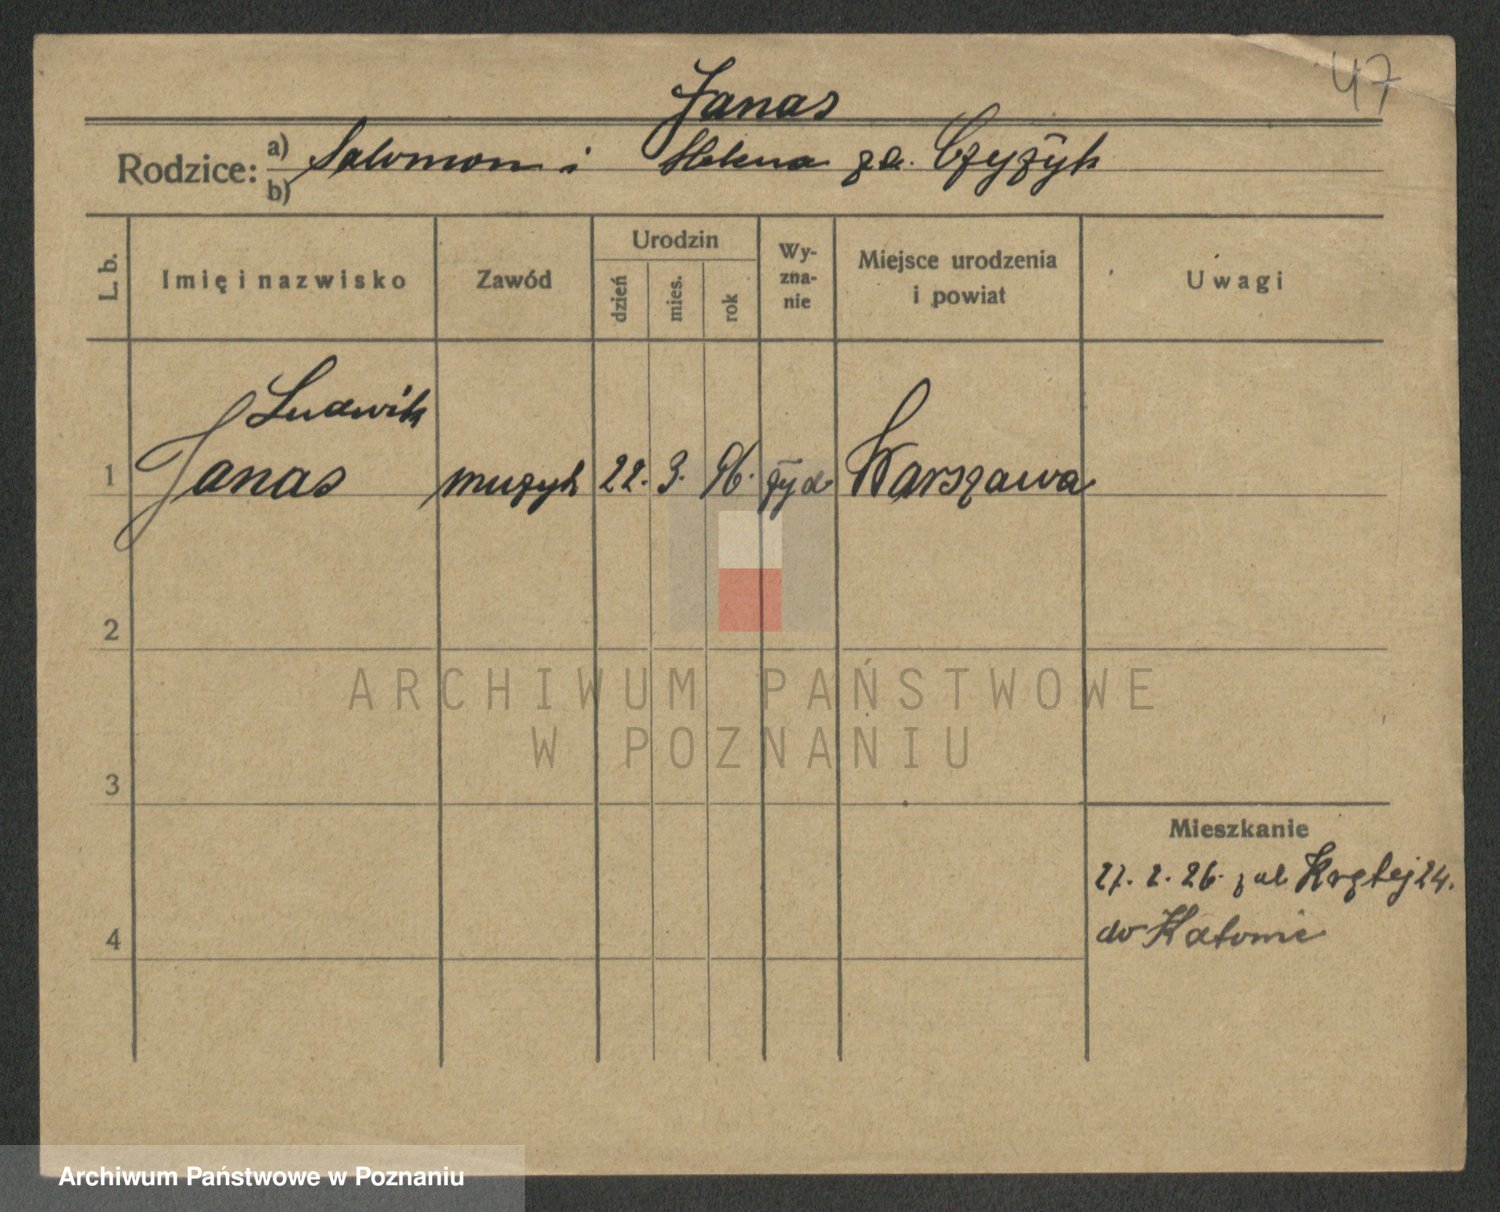 47
Janas
Rodzice: a) Salomon i Helena zd. Czyżyk
b)
L. b. Imię i nazwisko Zawód Urodzin dzień mies. rok Wy-zna-nie Miejsce urodzenia i powiat Uwagi
Ludwik
1 Janas muzyk 22. 3. 96. żyd Warszawa
2
ARCHIWUM PAŃSTWOWE
W POZNANIU
3
Mieszkanie
27. 2. 26. z ul. Krętej 24.
4 do Katowic
Archiwum Państwowe w Poznaniu